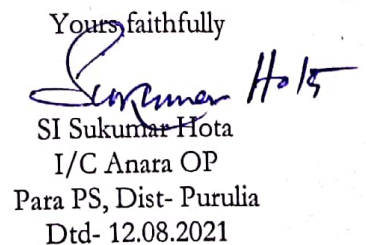 Yours faithfully
Sukumar Hota
SI Sukumar Hota
I/C Anara OP
Para PS, Dist- Purulia
Dtd- 12.08.2021